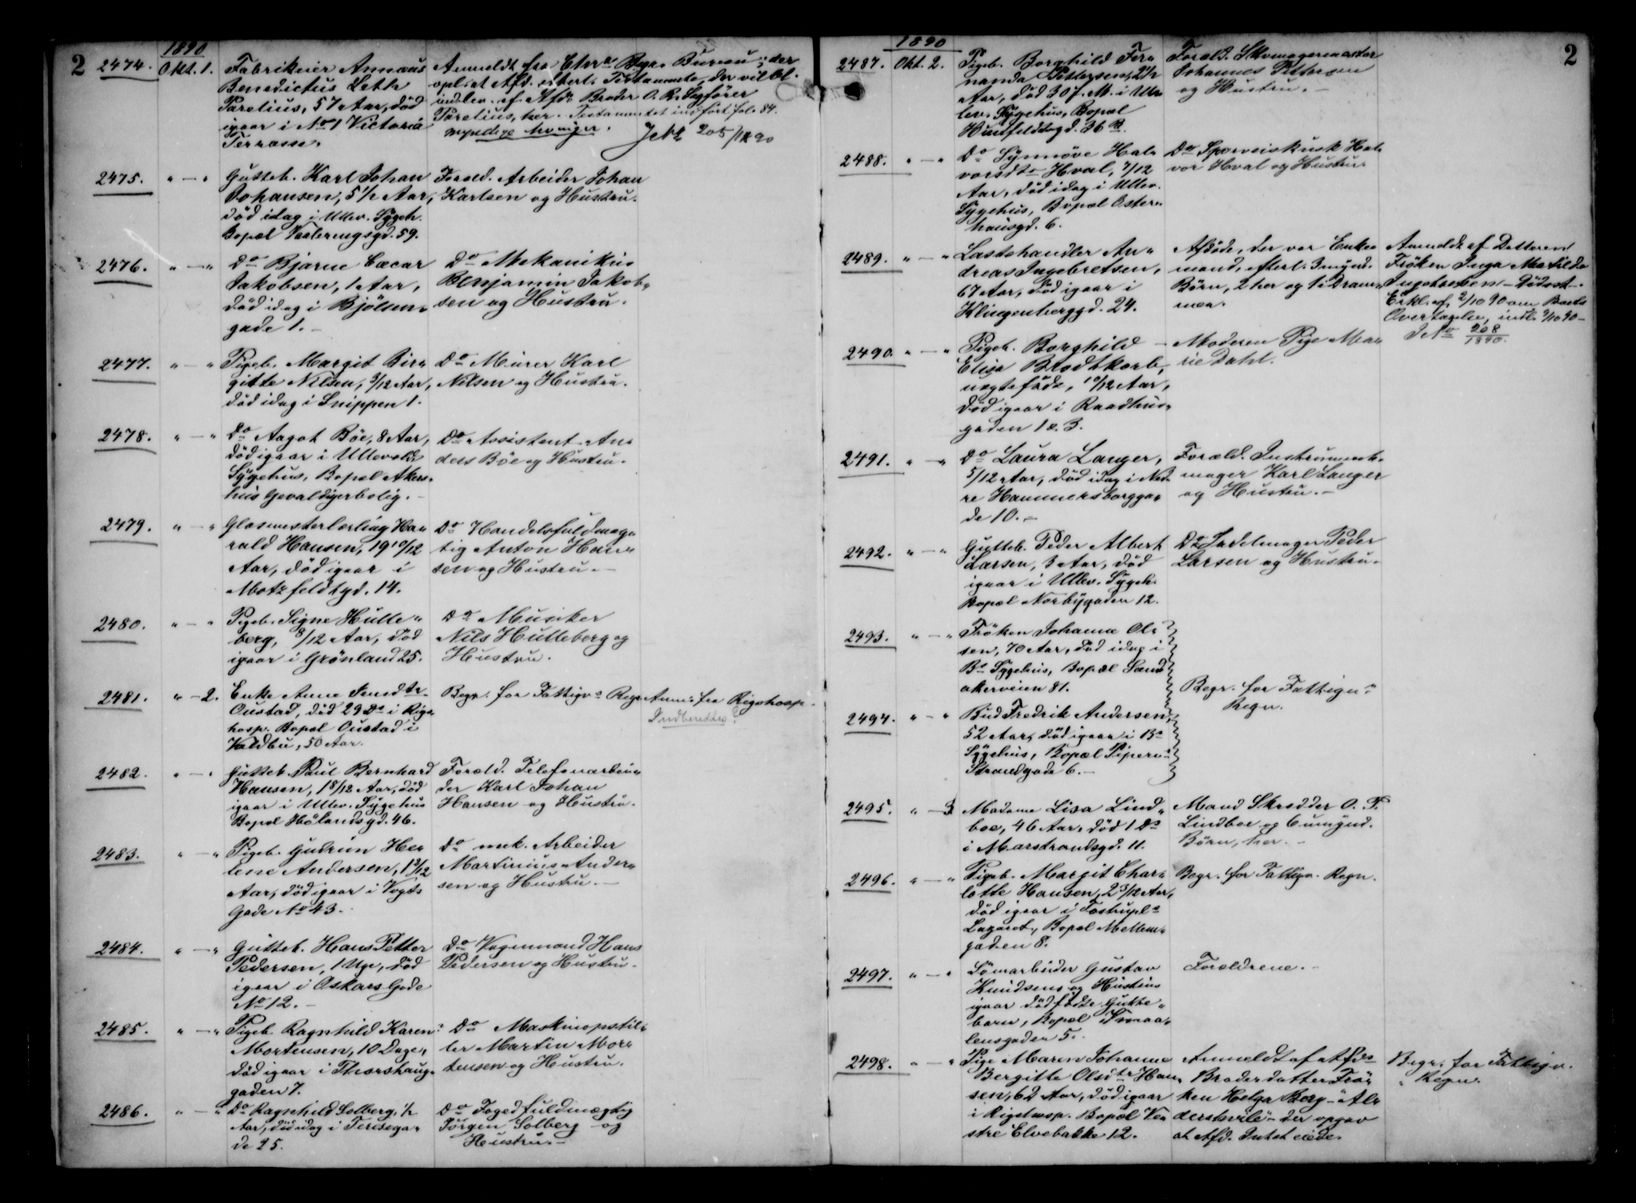 2
1890
2474. Okt. 1. Fabrikeier
Benedictus Leth
Paretius, 57 Aar, død
igaar i No 1 Victoria
Terrasse.
Anmeldt fra Bureau; der
indlev. af Afdøs Broder O. R. Sagfører
Paretius, her. Testamentet indført fol. 84.
myndige Arvinger. JNo 205/1890
2475. " — " Gutteb. Karl Johan
Johansen, 5 1/2 Aar,
død idag i Ullev. Sygeh.
Bopæl Vaalerengsgd. 59.
Foræld. Arbeider Johan
Karlsen og Hustru.
2476. " — " Do Bjarne Cæcar
Jakobsen, 1 Aar,
død idag i Bjølsen-
gade 1. —
Do Mekanikus
Benjamin Jakob-
sen og Hustru.
2477. " — " Pigeb. Margit Bir-
gitte Nilsen, 3/12 Aar,
død idag i Snippen 1.
Do Murer Karl
Nilsen og Hustru.
2478. " — " Do Aagot Bøe, 8 Aar,
død igaar i Ullevolds
Sygehus, Bopæl Akers-
hus Gevaldigerbolig. —
Do Assistent An-
ders Bøe og Hustru.
2479. " — " Glasmesterlærling Ha-
rald Hansen, 19 10/12
Aar, død igaar i
Motzfeldtgd. 14.
Do Handelsfuldmæg-
tig Anton Han-
sen og Hustru. —
2480. " — " Pigeb. Signe Hutle-
berg, 8/12 Aar, død
igaar i Grønland 25.
Do Musiker
Nils Hutleberg og
Hustru.
2481. " — 2. Enke Anne
Oustad, død 29 Ds i Rigs-
hosp. Bopæl Oustad i
Valdbu, 50 Aar.
Begr. for Fattigv. Regn.
Anm. fra Rigshosp.
Indberettes.
2482. " — " Gutteb. Paul Bernhard
Hansen, 1 8/12 Aar, død
igaar i Ullev. Sygehus
Bopæl Hølandsgd. 46.
Foræld. Telefonarbei-
der Karl Johan
Hansen og Hustru.
2483. " — " Pigeb. Gudrun He-
lene Andersen, 1 9/12
Aar, død igaar i Vogts
Gade No 43.
Do mek. Arbeider
Martinius Ander-
sen og Hustru. —
2484. " — " Gutteb. Hans Petter
Pedersen, 1 Uge, død
igaar i Oskars Gade
No 12. —
Do Vognmand Hans
Pedersen og Hustru.
2485. " — " Pigeb. Ragnhild Karen
Mortensen, 10 Dage,
død igaar i Thorshaug-
gaden 7.
Do Maskinopstil-
ler Martin Mor-
tensen og Hustru.
2486. " — " Do Ragnhild Solberg, 1/2
Aar, død idag i Terisega-
de 25.
Do Fogedfuldmægtig
Jørgen Solberg og
Hustru. —
2
1890
2487. Okt. 2. Pigeb. Borghild Fer-
nanda Pettersen,
Aar, død 30 f. M. i Ulle-
vo. Sygehus, Bopæl
Huitfeldtsgd. 36 B
Foræld. Skomagermester
Johannes Pettersen
og Hustru. —
2488. " — " Do Synnøve Hal-
vorsdtr Hval, 7/12
Aar, død idag i Ullev.
Sygehus, Bopæl Østern-
hausgd. 6.
Do Sporveiskusk Hal-
vor Hval og Hustru
2489. " — " Lasthandler An-
dreas Ingebretsen,
67 Aar, død igaar i
Klingenberggd. 24.
Afdøde, der var Enke-
mand, efterl. 3 mynd.
Børn, 2 her og 1 i Dram-
men.
Anmeldt af Datteren
Frøken Inga Matilde
Ingebretsen — Dødsat.
Erkl. af 2/10 90 om Boets
Overtagelse, indk. 3/10 90 —
JNo 208/1890.
2490. " — " Pigeb. Borghild
Elise Brodtkorb,
uægtefødt, 10/12 Aar,
død igaar i Raadhus-
gaden 12. 3.
Moderen Pige Ma-
rie Dahl.
2491. " — " Do Laura Langer,
5/12 Aar, død idag i Ned-
re Hammersborgga-
de 10. —
Foræld. Instrument-
mager Karl Langer
og Hustru. —
2492. " — " Gutteb. Peder Albert
Larsen, 3 Aar, død
igaar i Ullev. Sygeh.
Bopæl Norbygaden 12.
Do Sadelmager Peder
Larsen og Hustru.
2493. " — " Frøken Johanne Ol-
sen, 70 Aar, død idag i
Bs Sygehus, Bopæl Sand-
akerveien 81.
2494. " — " Bud Fredrik Andersen,
52 Aar, død igaar i Bs
Sygehus, Bopæl Pipervs
Strandgade 6. —
Begr. for Fattigv.
Regn.
2495. " — 3. Madame Lisa Lind-
boe, 46 Aar, død 1 Ds
i Marstrandsgd. 11.
Mand Skredder O. F.
Lindboe og 6 umynd.
Børn, her. —
2496. " — " Pigeb. Margit Char-
lotte Hansen, 2 3/12 Aar,
død igaar i
Lazaret, Bopæl Mellem-
gaden 8.
Begr. for Fattigv. Regn.
2497. " — " Sømarbeider Gustav
Knudsens og Hustrus
igaar dødfødte Gutte-
barn, Bopæl Smaa-
lensgaden 5.
Forældrene. —
2498. " — " Pige Maren Johanne
Bergitte Olsdtr Han-
sen, 62 Aar, død igaar
i Rigshosp. Bopæl Ve-
stre Elvebakke 12.
Anmeldt af Afdø
Broderdatter Frø-
ken Helga Berg
der opgav
at Afd. Intet eiede.
Begr. for Fattigv.
Regn.